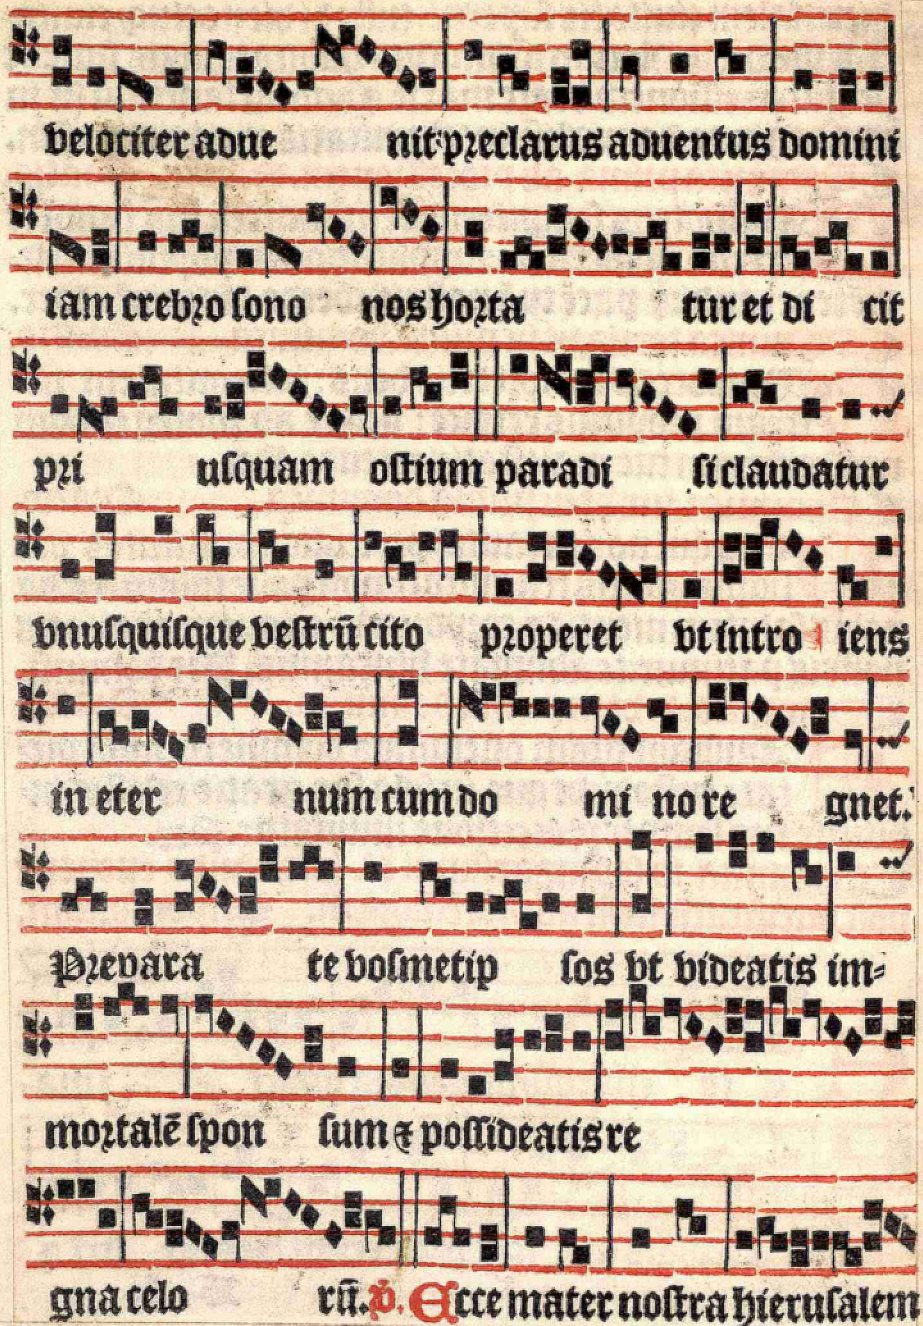 velociter adue nit: preclarus aduentus domini
iam crebro sono nos horta tur et di cit
pri usquam ostium paradi si claudatur
vnusquisque vestrū cito properet vt intro iens
in eter num cum do mi no re gnet.
Prepara te vosmetip sos vt videatis im-
mortalē spon sum ⁊ possideatis re
gna celo rū. v̄. Ecce mater nostra hierusalem